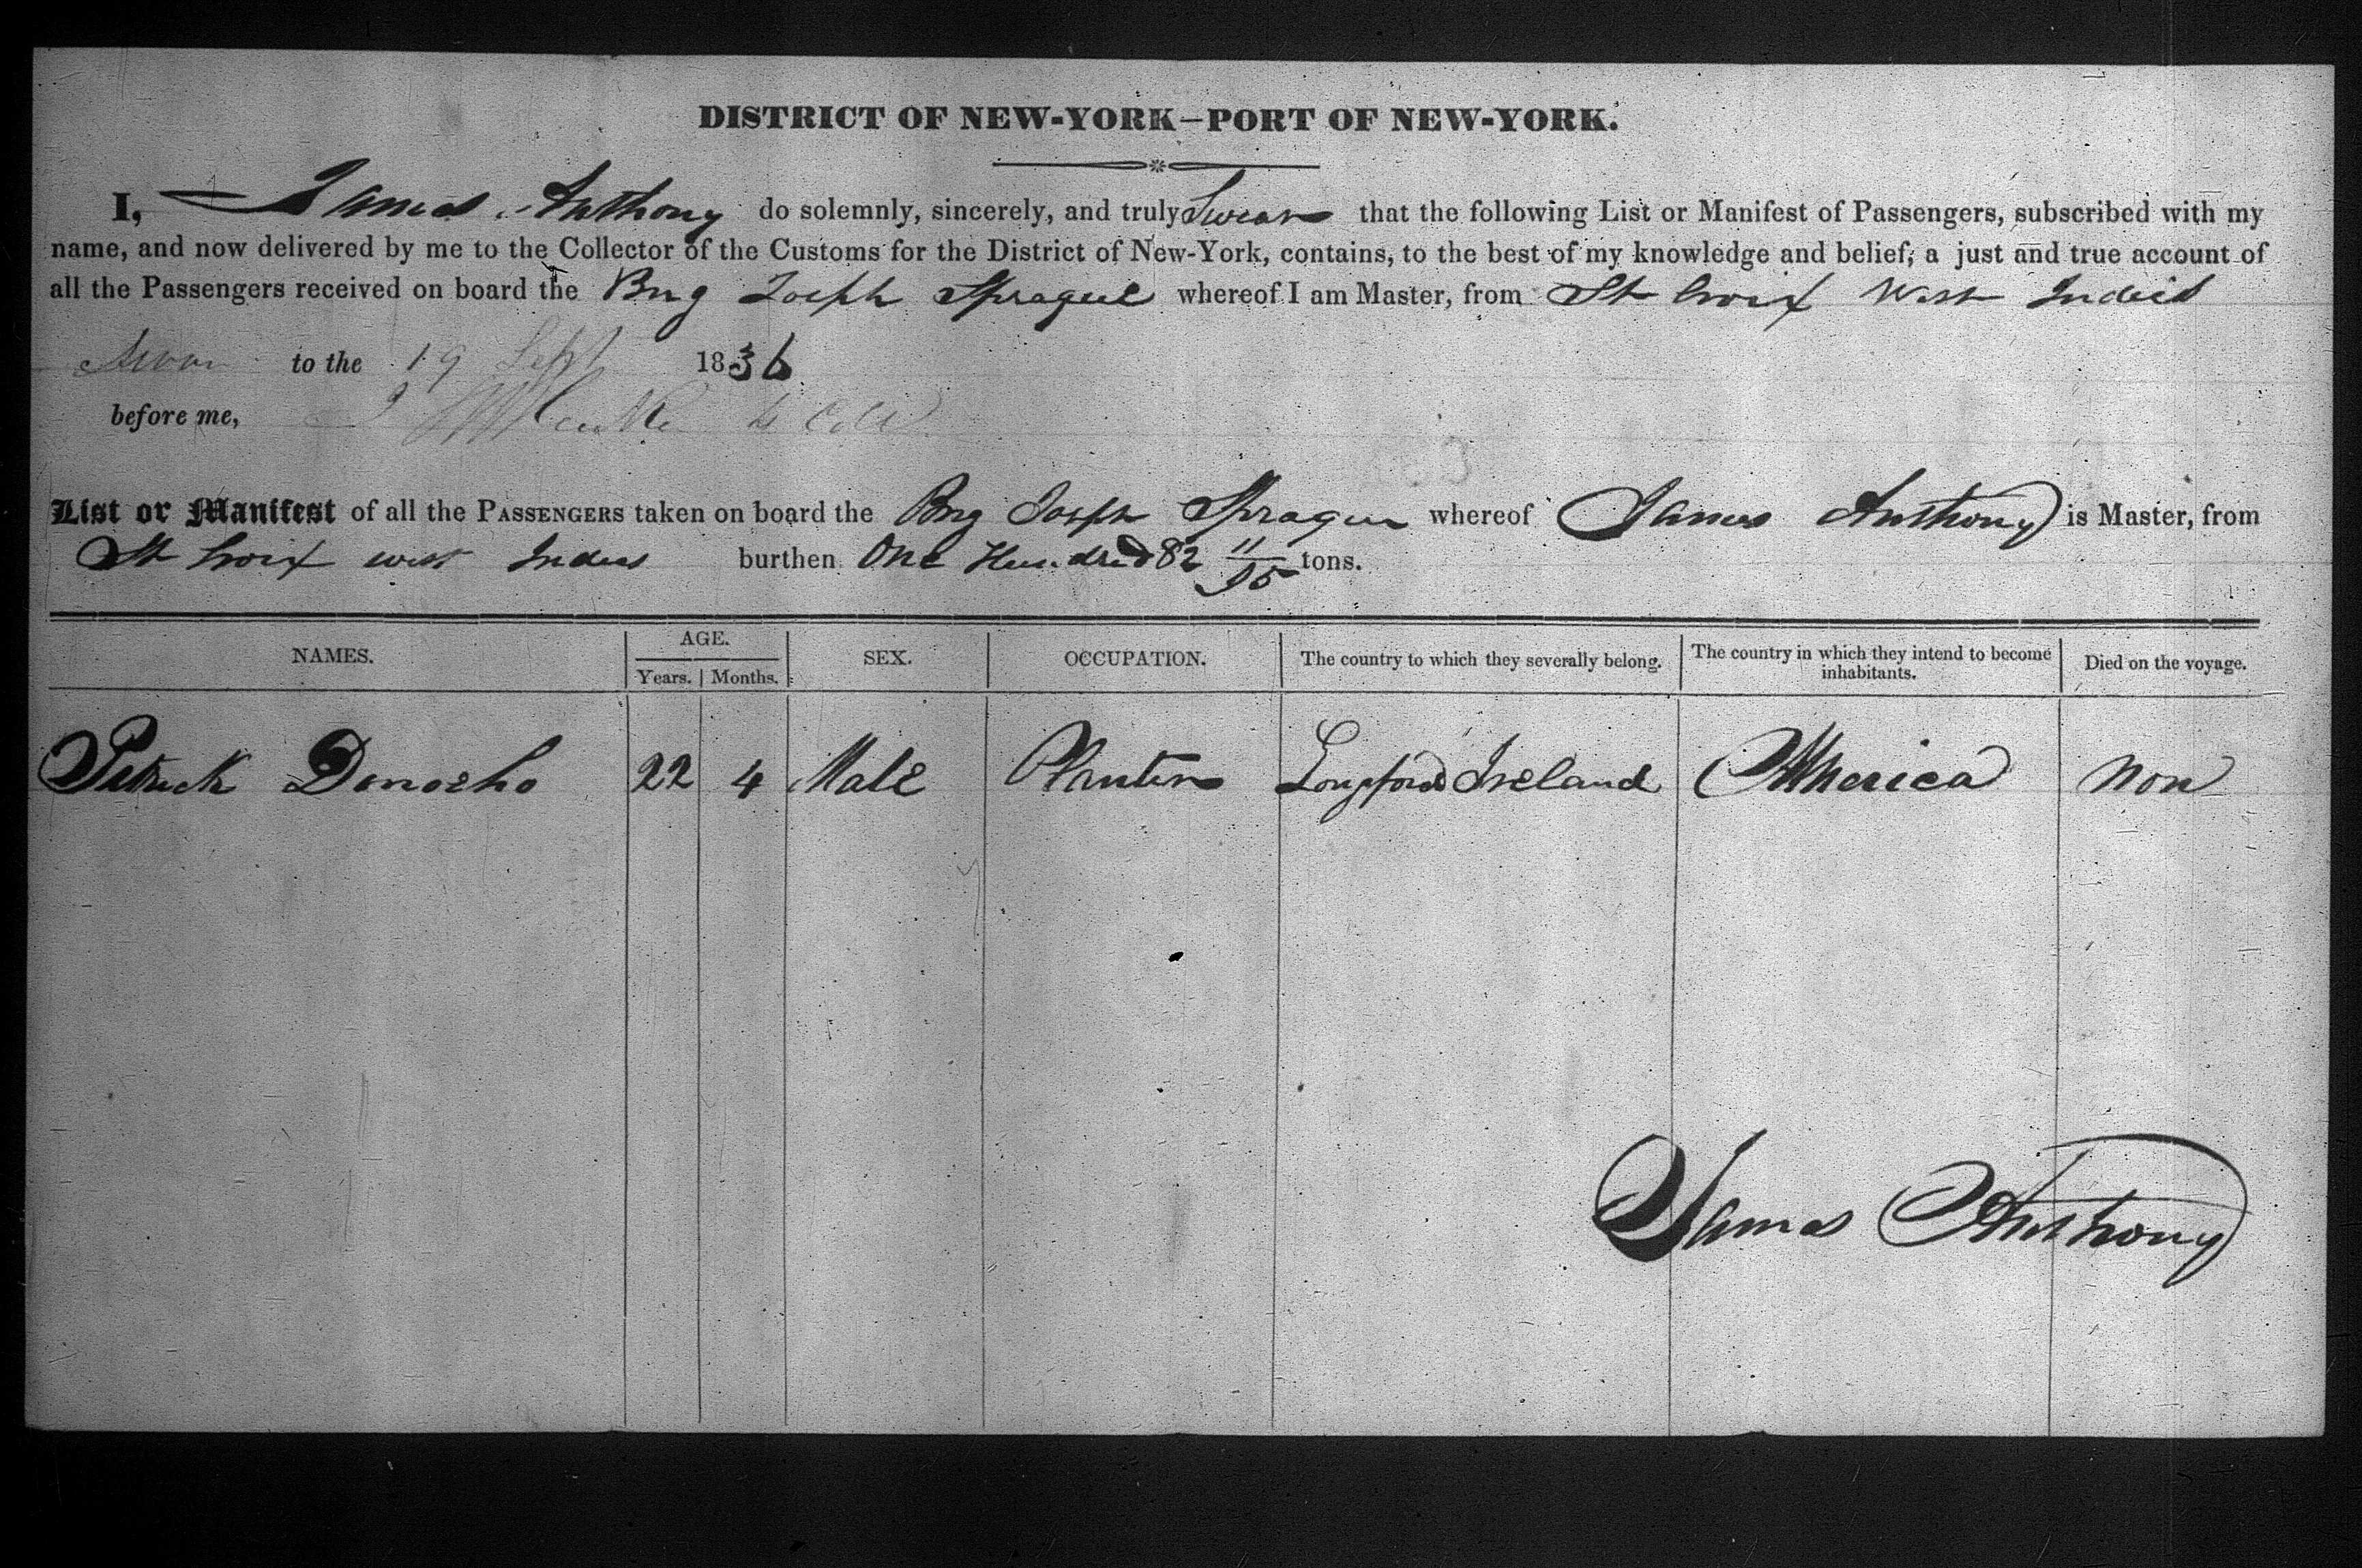 DISTRICT OF NEW-YORK—PORT OF NEW-YORK.
I, James Anthony do solemnly, sincerely, and truly Swear that the following List or Manifest of Passengers, subscribed with my
name, and now delivered by me to the Collector of the Customs for the District of New-York, contains, to the best of my knowledge and belief, a just and true account of
all the Passengers received on board the Brig Joseph Sprague whereof I am Master, from St Croix West Indies
Sworn to the 19 Sept 1836
before me,
List or Manifest of all the PASSENGERS taken on board the Brig Joseph Sprague whereof James Anthony is Master, from
St Croix west Indies burthen One Hundred 82 11/95 tons.
NAMES. AGE. Years. Months. SEX. OCCUPATION. The country to which they severally belong. The country in which they intend to become inhabitants. Died on the voyage.
Patrick Donoeho 22 4 Male Planter Longford Ireland America Non
James Anthony